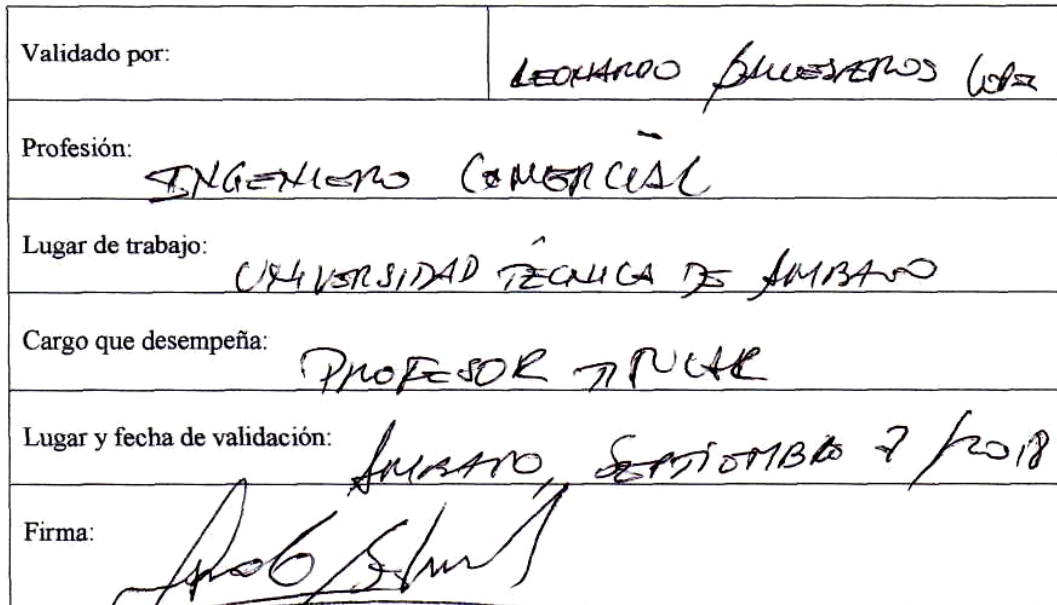 Validado por: LEONARDO BALLESTEROS LOPEZ
Profesión: INGENIERO COMERCIAL
Lugar de trabajo: UNIVERSIDAD TÉCNICA DE AMBATO
Cargo que desempeña: PROFESOR TITULAR
Lugar y fecha de validación: AMBATO, SEPTIEMBRE 7/2018
Firma: